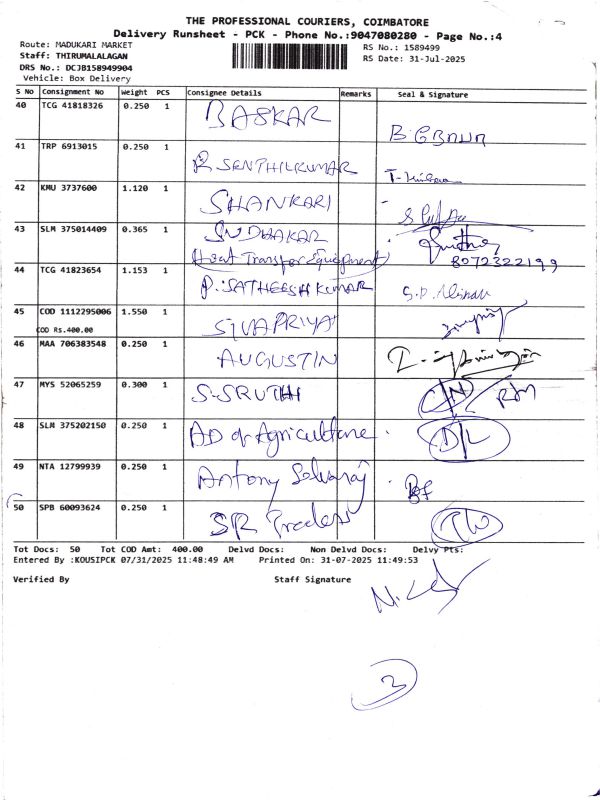 THE PROFESSIONAL COURIERS, COIMBATORE
Delivery Runsheet - PCK - Phone No.:9047080280 - Page No.:4
Route: MADUKARI MARKET
RS No.: 1589499
Staff: THIRUMALALAGAN
RS Date: 31-Jul-2025
DRS No.: DCJB158949904
Vehicle: Box Delivery
S No Consignment No Weight PCS Consignee Details Remarks Seal & Signature
40 TCG 41818326 0.250 1 BASKAR
41 TRP 6913015 0.250 1 R SENTHILKUMAR
42 KMU 3737600 1.120 1 SHANKARI
43 SLM 375014409 0.365 1 SUDHAKAR
Heat Transfer Equipment 8072322199
44 TCG 41823654 1.153 1 P. SATHEESH KUMAR
45 COD 1112295006 1.550 1 SIVAPRIYA
COD Rs.400.00
46 MAA 706383548 0.250 1 AUGUSTIN
47 MYS 52065259 0.300 1 S. SRUTHI
48 SLM 375202150 0.250 1 AD of Agriculture D/L
49 NTA 12799939 0.250 1 Antony Selvaraj
50 SPB 60093624 0.250 1 SR Traders
Tot Docs: 50 Tot COD Amt: 400.00 Delvd Docs: Non Delvd Docs: Delvy Pts:
Entered By :KOUSIPCK 07/31/2025 11:48:49 AM Printed On: 31-07-2025 11:49:53
Verified By Staff Signature